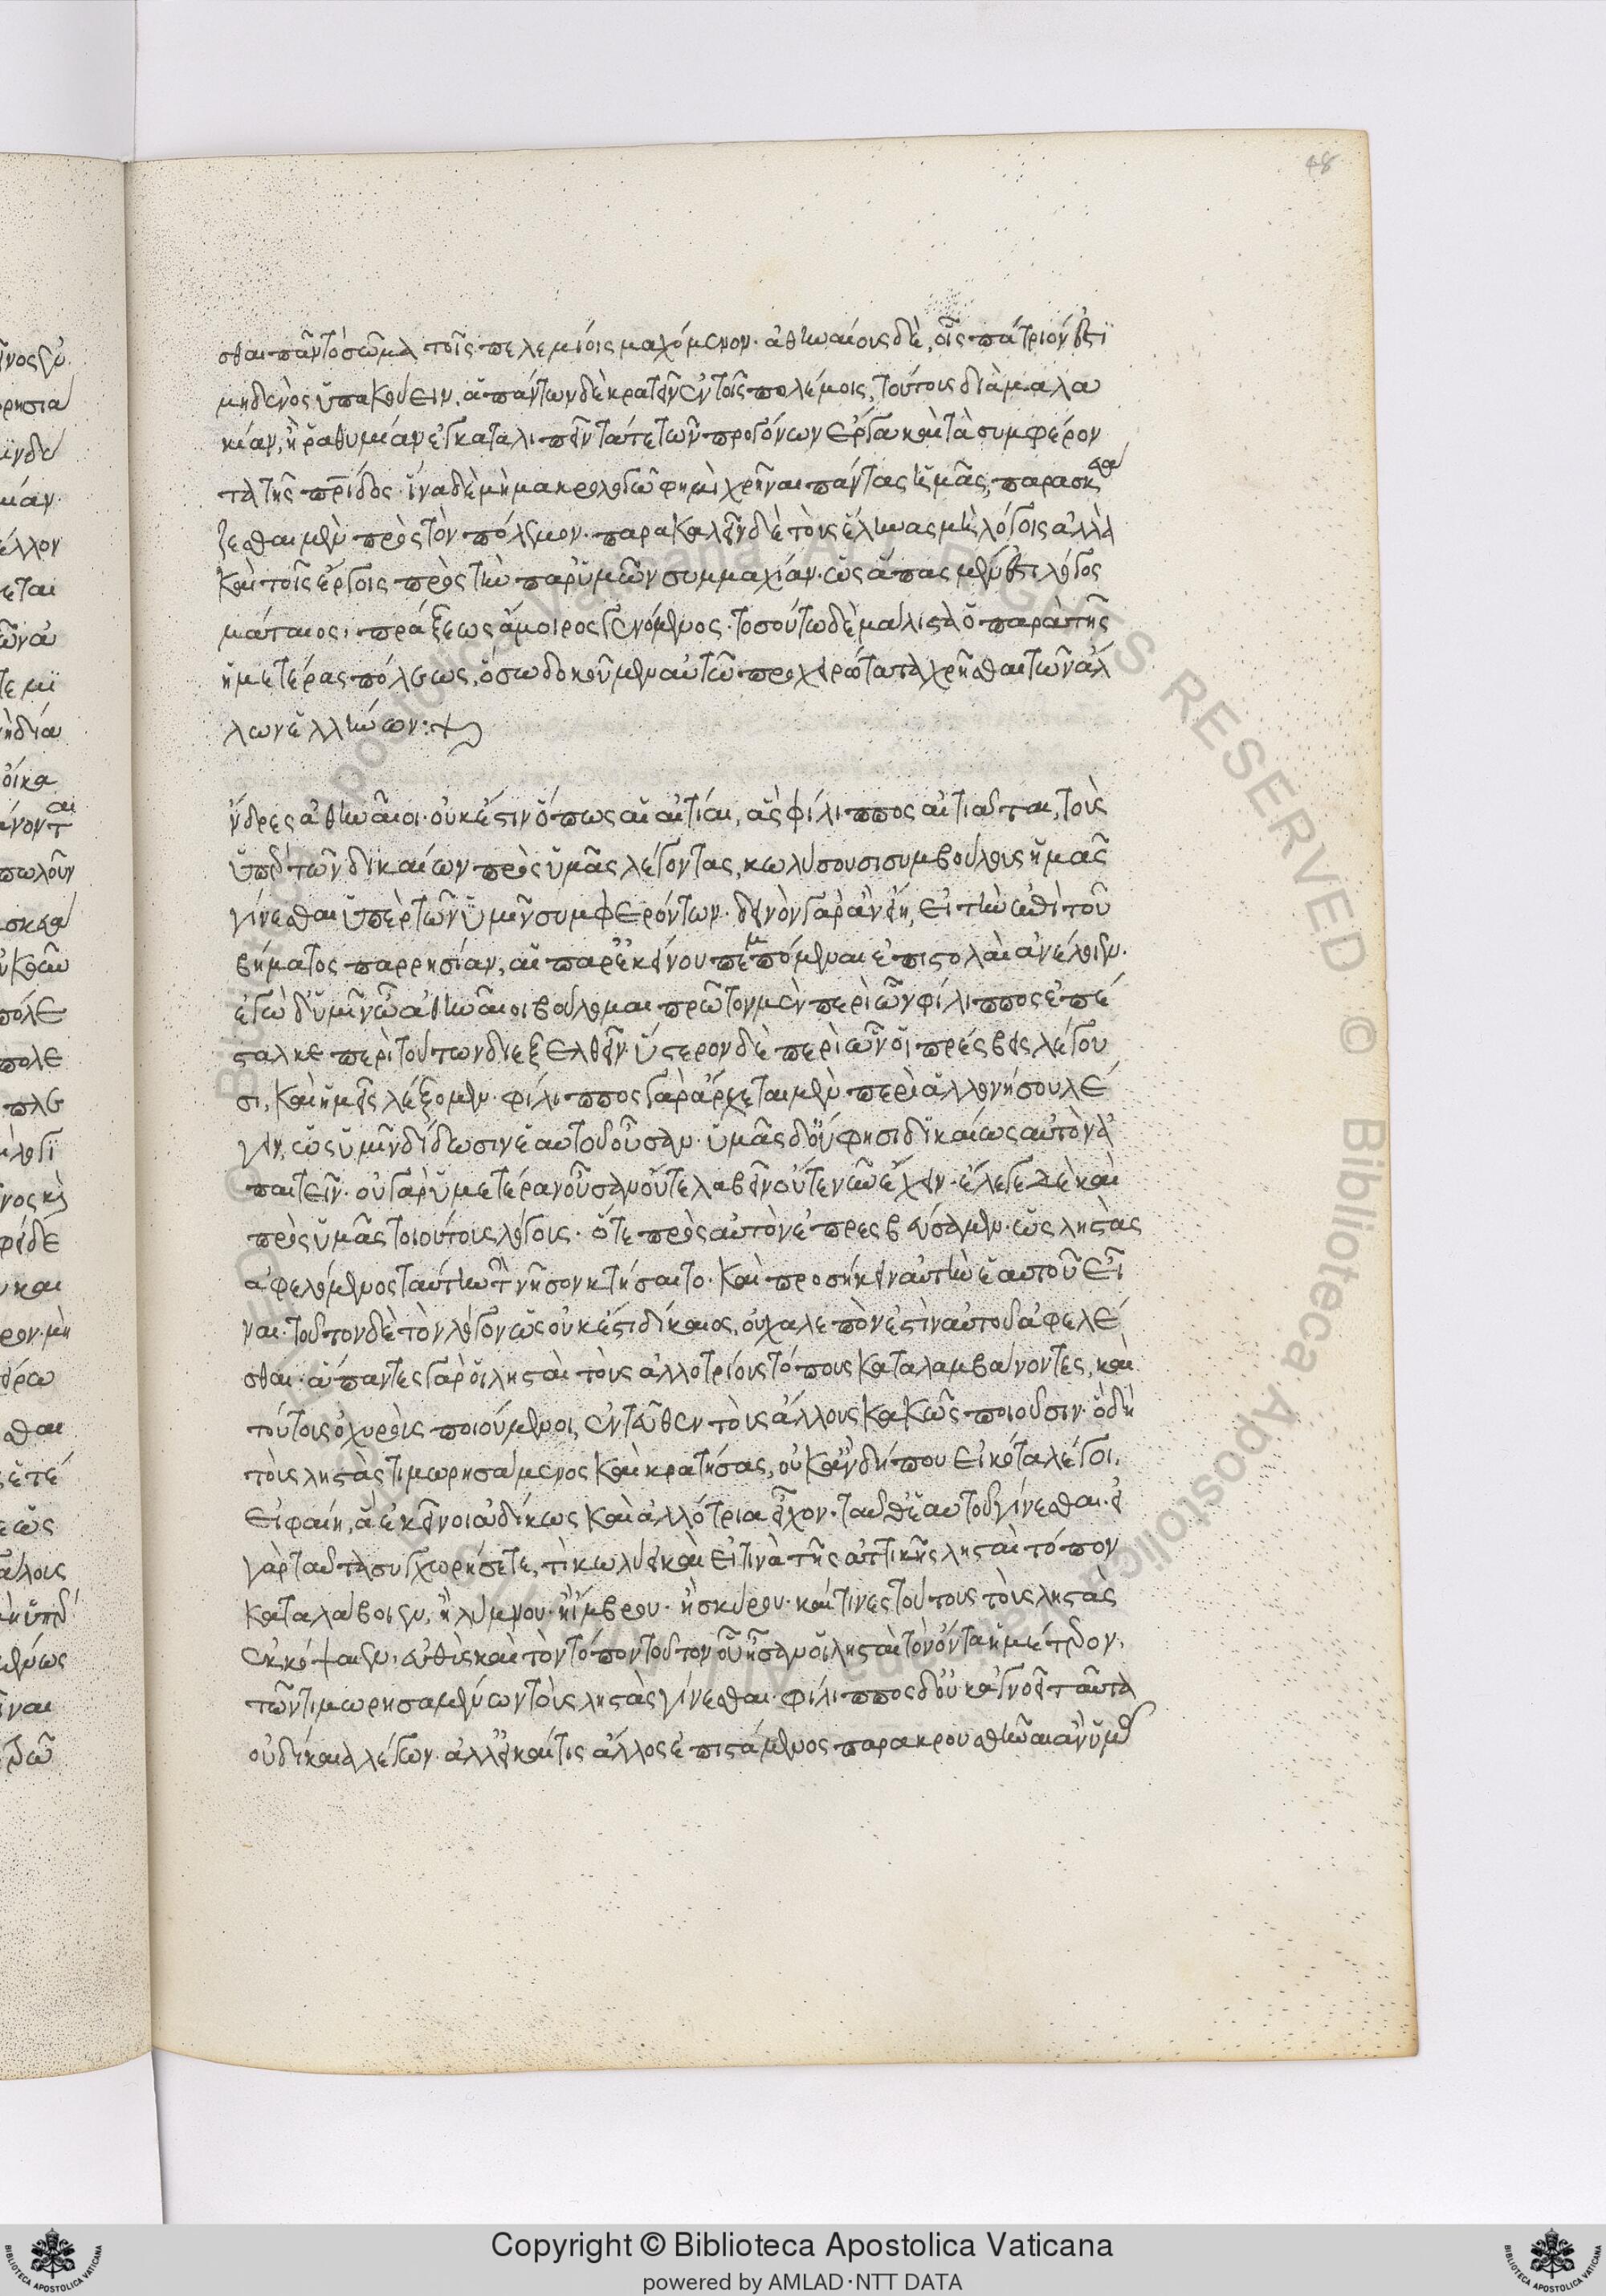 48
σθαι πᾶν τὸ σῶμα τοῖς πελεμίοις μαχόμενον· ἀθηναίοις δὲ, οἷς πάτριόν ἐστϊ
μηδενὸς ὑπακούειν. ἁπάντων δὲ κρατεῖν ἐν τοῖς πολέμοις, τούτοις διὰ μαλα
κίαν, ἢ ῥαθυμίαν ἐγκαταλιπεῖν τά τε τῶν προγόνων ἔργα καὶ τὰ συμφέρον
τα τῆς πρίδος· ἵνα δὲ μὴ μακρολογῶ φημὶ χρῆναι πάντας ἡμᾶς, παρασκευά
ζεσθαι μὲν πρὸς τὸν πόλεμον· παρακαλεῖν δὲ τοὺς ἕλληνας μὴ λόγοις ἀλλὰ
καὶ τοῖς ἔργοις πρὸς τὴν παρ' ὑμῶν συμμαχίαν· ὡς ἅπας μέν ἐστι λόγος
μάταιος, πράξεως ἄμοιρος γενόμενος· τοσούτω δὲ μάλιστα ὁ παρὰ τῆς
ἡμετέρας πόλεως, ὅσω δοκοῦμεν αὐτῶ προχειρότατα χρῆσθαι τῶν ἀλ
λων ἑλλήνων:
ἄνδρες ἀθηναῖοι· οὐκ ἔστιν ὅπως αἱ αἰτίαι, ἃς φίλιππος αἰτιᾶται, τοὺς
ὑπὲρ τῶν δικαίων πρὸς ὑμᾶς λέγοντας, κωλύσουσι συμβούλους ἡμᾶς
γίνεσθαι ὑπὲρ τῶν ὑμῖν συμφερόντων· δεινὸν γὰρ ἂν εἴη, εἰ τὴν ἐπὶ τοῦ
βήματος παρρησίαν, αἱ παρ' ἐκείνου πεμπόμεναι ἐπιστολαὶ ἀνέλοιεν·
ἐγὼ δ' ὑμῖν ὦ ἀθηναῖοι βούλομαι πρῶτον μὲν περὶ ὧν φίλιππος ἐπέ
σταλκε περὶ τούτων διεξελθεῖν· ὕστερον δὲ περὶ ὧν οἱ πρέσβεις λέγου
σι, καὶ ἡμεῖς λέξομεν· φίλιππος γὰρ ἄρχεται μὲν περὶ ἁλλονήσου λέ
γειν, ὡς ὑμῖν δίδωσιν ἑαυτοῦ οὖσαν· ὑμᾶς δ' οὔ φησι δικαίως αὐτὸν ἀ
παιτεῖν· οὐ γὰρ ὑμετέραν οὖσαν οὔτε λαβεῖν οὔτε νῦν ἔχειν· ἔλεγε δὲ καὶ
πρὸς ὑμᾶς τοιούτους λόγους· ὅτε πρὸς αὐτὸν ἐπρεσβεύσαμεν· ὡς ληστὰς
ἀφελόμενος ταύτην τὴν νῆσον κτήσαιτο· καὶ προσήκειν αὐτὴν ἑαυτοῦ εἶ
ναι· τοῦτον δὲ τὸν λόγον ὡς οὐκ ἔστι δίκαιος, οὐ χαλεπόν ἐστιν αὐτοῦ ἀφελέ
σθαι· ἅπαντες γὰρ οἱ λησταὶ τοὺς ἀλλοτρίους τόπους καταλαμβάνοντες, καὶ
τούτους ὀχυροὺς ποιούμενοι, ἐντεῦθεν τοὺς ἄλλους κακῶς ποιοῦσιν· ὁ δὴ
τοὺς ληστὰς τιμωρησάμενος καὶ κρατήσας, οὐκ ἂν δήπου εἰκότα λέγοι,
εἰ φαίη, ἃ ἐκεῖνοι ἀδίκως καὶ ἀλλότρια εἶχον· ταῦθ' ἑαυτοῦ γίνεσθαι· εἰ
γὰρ ταῦτα συγχωρήσετε, τί κωλύει καὶ εἴ τινα τῆς ἀττικῆς λησταὶ τόπον
καταλάβοιεν, ἢ λύμνου· ἢ ἴμβρου· ἢ σκύρου· καί τινες τούτους τοὺς ληστὰς
ἐκκόψαιεν, εὐθὺς καὶ τὸν τόπον τοῦτον οὗ ἦσαν οἱ λησταὶ τὸν ὄντα ἡμέτερον,
τῶν τιμωρησαμένων τοὺς ληστὰς γίνεσθαι· φίλιππος δ' οὐκ ἀγνοεῖ ταῦτα
οὐ δίκαια λέγων· ἀλλ' εἰ καί τις ἄλλος ἐπιστάμενος παρακρουσθῆναι ἂν ὑμᾶς
Copyright © Biblioteca Apostolica Vaticana
powered by AMLAD·NTT DATA